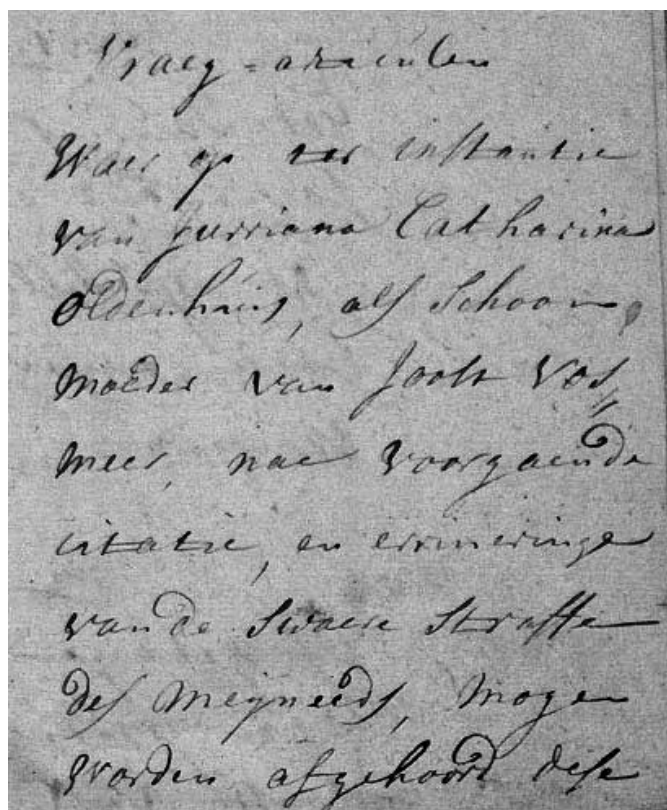 Vraeg-articulen
Waer op ter instantie
van Jurriana Catharina
Oldenhuis, als Schoon,
moeder van Joost Vos„
meer, nae voorgaende
citatie, en errineringe
van de swaere straffe
des meyneeds, mogen
worden afgehoord dese